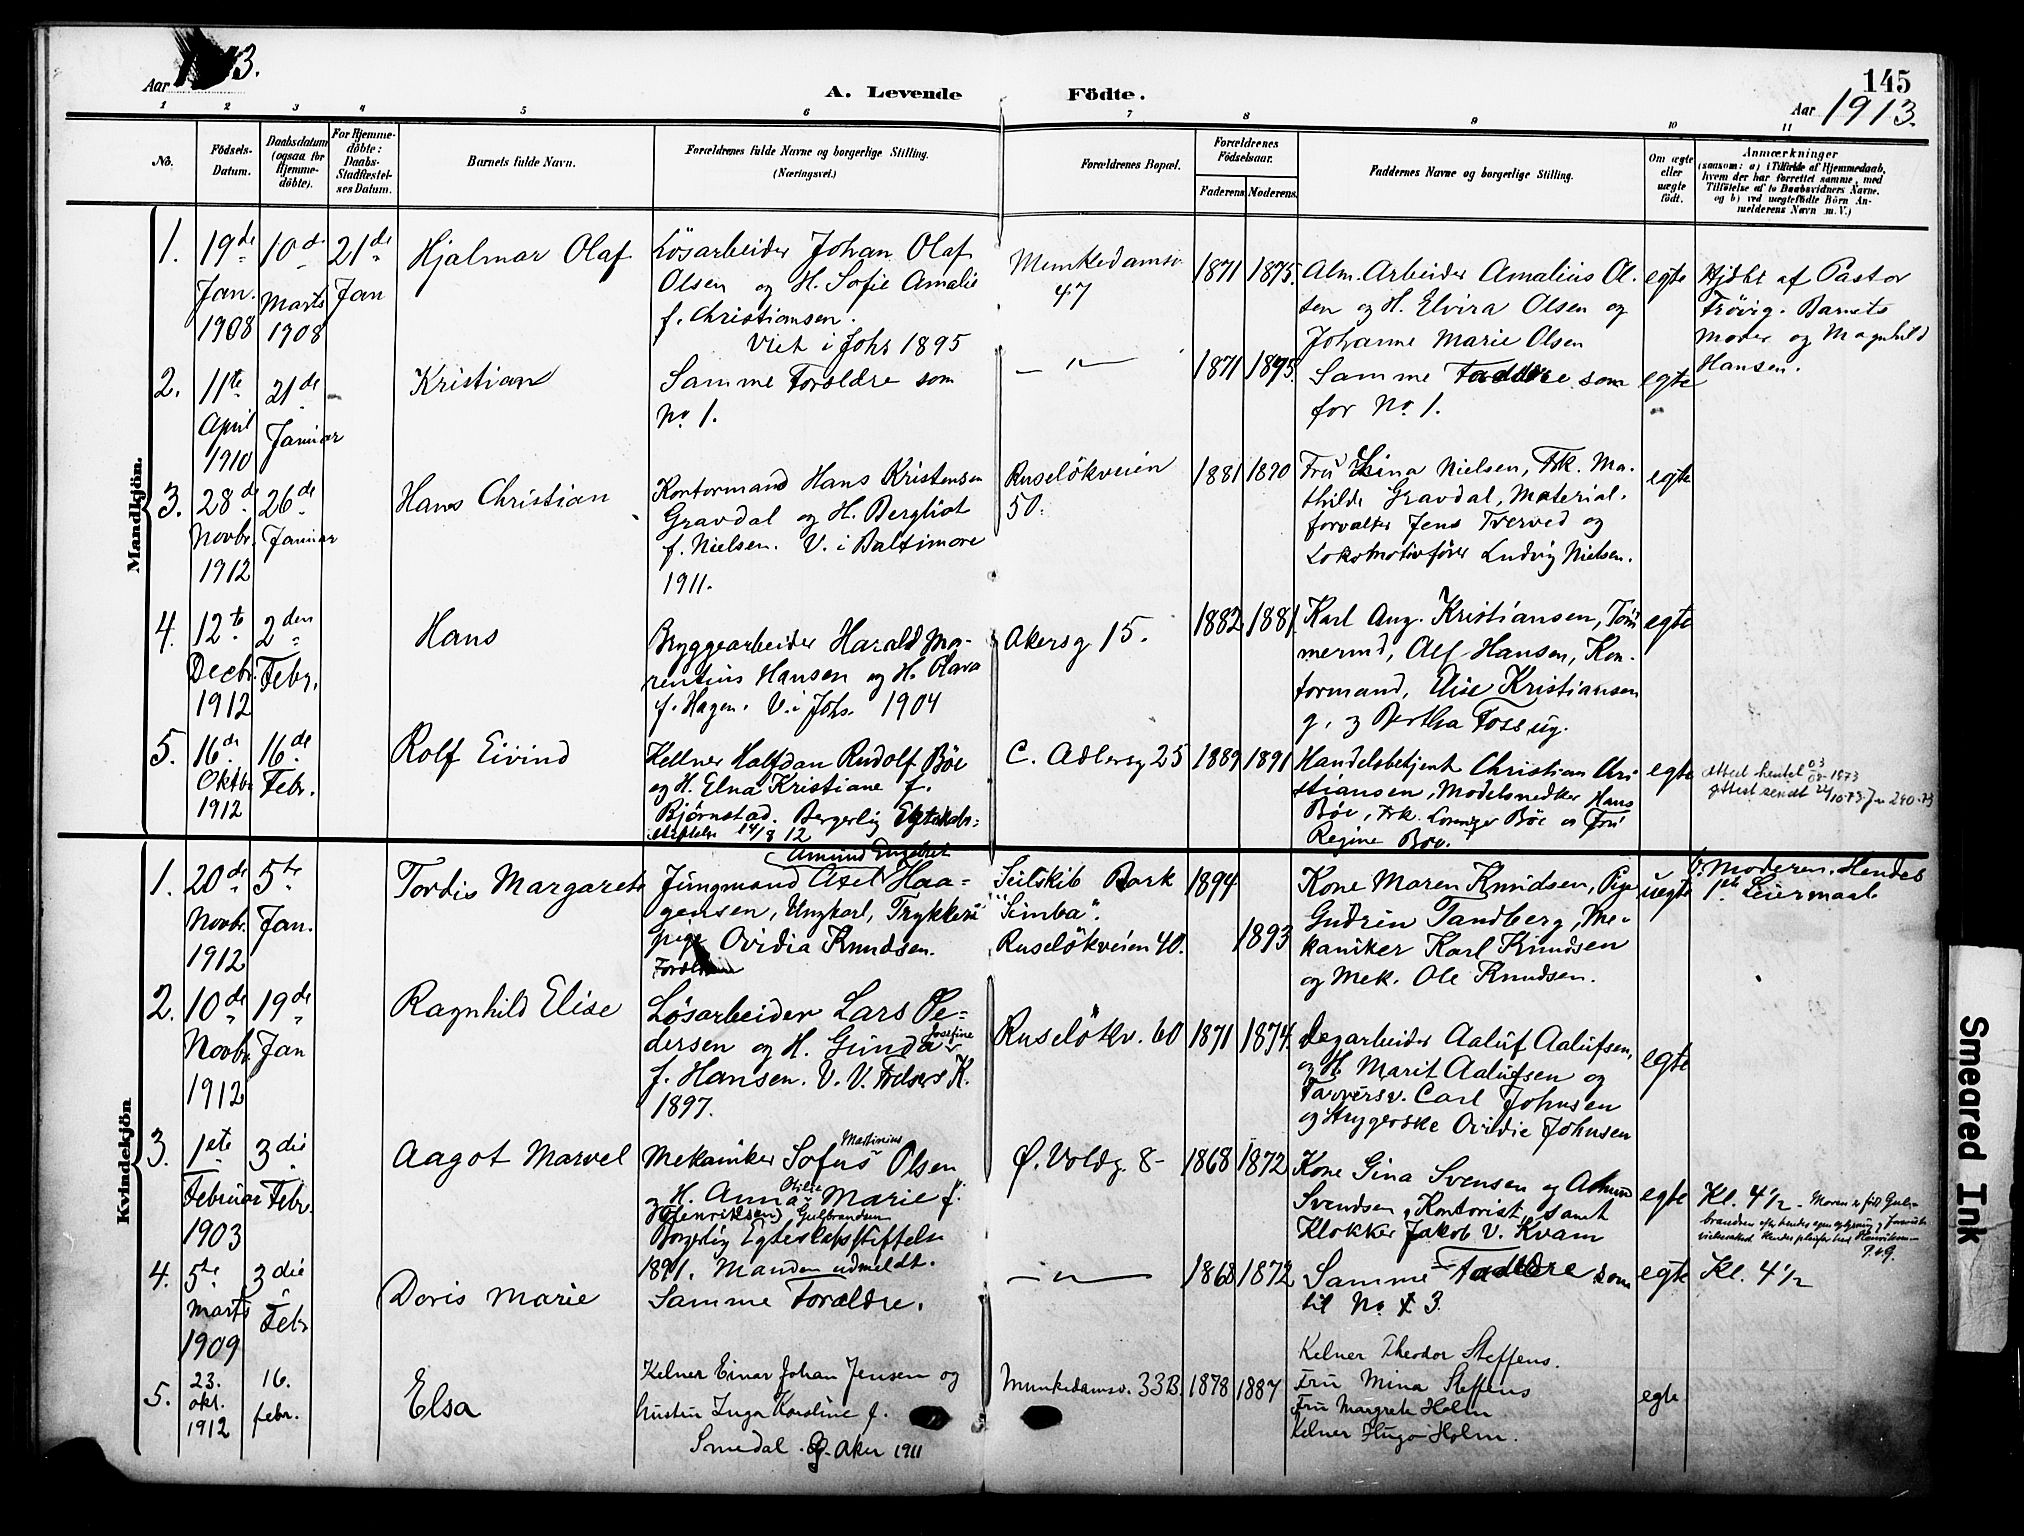 Aar 1913.
A. Levende Födte.
145
Aar 1913.
1 2 3 4 5 6 7 8 9 10 11
No.
Födsels-
Datum.
Daabsdatum
(ogsaa for
Hjemme-
döbte).
For Hjemme-
döbte:
Daabs-
Stadfæstel-
ses Datum.
Barnets fulde Navn.
Forældrenes fulde Navne og borgerlige Stilling.
(Næringsvei.)
Forældrenes Bopæl.
Forældrenes
Födselsaar.
Faderens. Moderens.
Faddernes Navne og borgerlige Stilling.
Om ægte
eller
uægte
født.
Anmærkninger
(saasom: a) i Tilfælde af Hjemmedaab,
hvem der har forrettet samme, med
Tilföielse af to Daabsvidners Navne.
og b) ved uægtefödte Börn An-
melderens Navn m. V.)
Mandkjön.
1.
19de
Jan.
1908
10de
Marts
1908
21de
Jan
Hjalmar Olaf
Løsarbeider Johan Olaf
Olsen og H. Sofie Amalie
f. Christiansen.
Viet i Johs 1895
Munkedamsv.
47
1871
1875.
Alm. Arbeider Amalius Ol-
sen og H. Elvira Olsen og
Johanne Marie Olsen
egte
Hjdbt af Pastor
Frøvig. Barnets
moder og Magnhild
Hansen.
2.
11te
April
1910
21de
Januar
Kristian
Samme Forældre som
No 1.
— " —
1871
1875.
Samme Faddere som
for No 1.
egte
3.
28de
Novbr.
1912
26de
Januar
Hans Christian
Kontormand Hans Kristensen
Gravdal og H. Bergliot
f. Nielsen. V. i Baltimore
1911.
Ruseløkveien
50.
1881
1890
Fru Lina Nielsen, Frk. Ma-
thilde Gravdal, Material-
forvalter Jens Tverved og
Lokomotivfører Ludvig Nielsen.
egte
4.
12te
Decbr.
1912
2den
Febr.
Hans
Bryggearbeider Harald Ma-
rentius Hansen og H. Olava
f. Hagen. V. i Johs. 1904
Akersg 15.
1882
1881.
Karl Aug. Kristiansen, Töm-
mermd, Alf Hansen, Kon-
tormand, Elise Kristiansen
g, og Bertha Foss ug.
egte
5.
16de
Oktbr
1912
16de
Febr.
Rolf Eivind
Kellner Halfdan Rudolf Böe
og H. Elna Kristiane f.
Bjørnstad. Borgerlig Egteskabs-
stiftelse 14/8 12
C. Adlersg 25
1889
1891
Handelsbetjent Christian Chri-
stiansen, Modelsnedker Hans
Böe, Frk. Böe og Fru
Regine Böe.
egte
Attest sendt 22/10-73
Kvindekjön
1.
20de
Novbr.
1912
5te
Jan.
Tordis Margarete
Amund Engebret
Jungmand Axel Haa-
gensen, Ungkarl, Trykkeri
pige Ovidia Knudsen.
Forældrene
Seilskib Bark
"Simba".
Ruseløkveien 40.
1894
1893
Kone Maren Knudsen, Pige
Gudrun Tandberg, Me-
kaniker Karl Knudsen
og Mek. Ole Knudsen.
uegte
v. Moderen. Hendes
1ste Leiermaal
2.
10de
Novbr
1912
19de
Jan
Ragnhild Elise
Løsarbeider Lars Pe-
dersen og H. Gunda Josefine
f. Hansen. V. V. Frelsers K.
1897.
Ruseløkv. 60
1871
1874.
Legarbeider Aaluf Aalufsen,
og H. Marit Aalufsen og
Carl Johnsen
og Strygerske Ovidie Johnsen
egte
3.
1ste
Februar
1903
3die
Febr.
Aagot Marvel
Mekaniker Sofus Martinius Olsen
og H. Anna Otilie Marie f.
(Henriksen) Gulbrandsen
Borgerlig Egteskapsstiftelse
1891. Manden udmeldt.
Ø. Voldg. 8-
1868
1872
Kone Gina Svensen og Amund
Svendsen, Kontorist, samt
Klokker Jakob V. Kvam
egte
Kl. 4½ - Moren er født Gul-
brandsen efter hendes egen opgivning
Hendes pleiefar hed Henriksen
4.
5te
Marts
1909
3die
Febr
Doris Marie
Samme Forældre.
— " —
1868
1872
Samme Faddere som
til No 3.
egte
Kl. 4½
5.
23.
okt.
1912
16.
febr.
Elsa
Kelner Einar Johan Jensen og
hustru Inga Karoline f.
Smedal. Aker 1911
Munkedamsv. 33B.
1878
1887
Kelner Theodor Steffens.
Fru Mina Steffens
Fru Margrete Holm
Kelner Hugo Holm.
egte
Smeared Ink